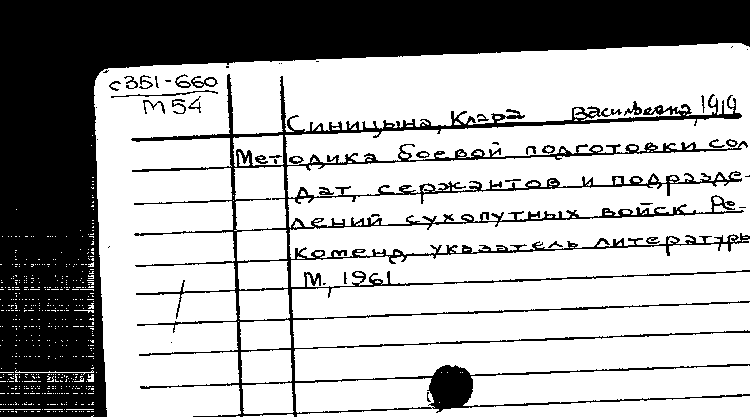 с351-660
М54
Синицына, Клара Васильевна, 1919
Методика боевой подготовки сол
дат, сержантов и подразде-
лений сухопутных войск. Ре-
коменд. указатель литературы
М., 1961